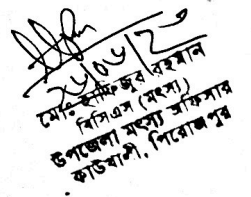 ২৮/০৮/২৩
মোঃ হাফিজুর রহমান
বিসিএস (মৎস্য)
উপজেলা মৎস্য অফিসার
কাউখালী, পিরোজপুর